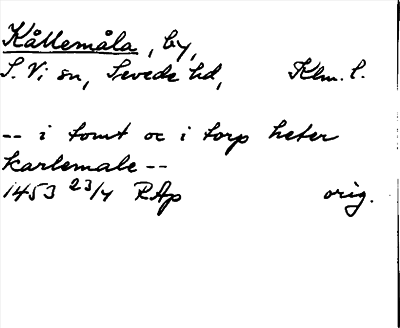 Kållemåla, by,
S. Vi sn, Sevede hd, Klm. l.
-- i tomt oc i torp heter
karlemale --
1453 23/4 RAp orig.